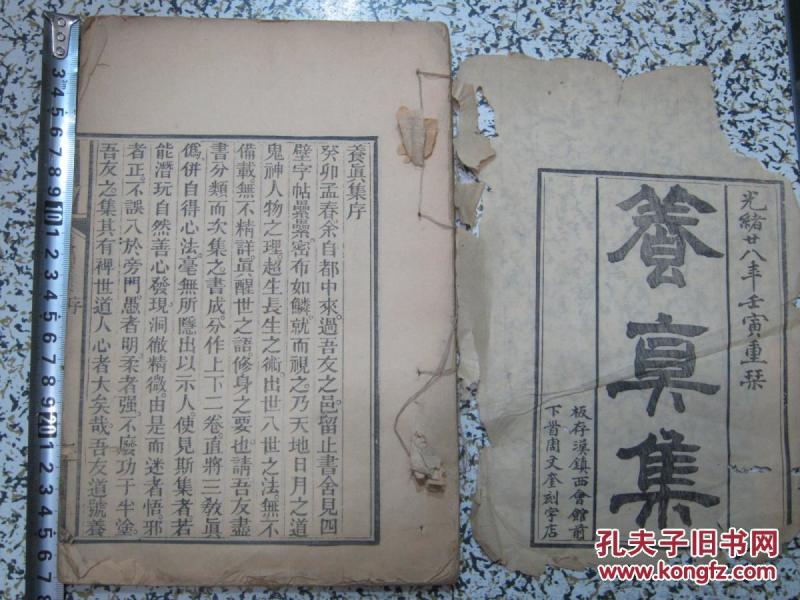 養真集序
癸卯孟春余自都中來。過吾友之邑。留止書舍見四
壁字帖纍纍。密布如鱗。就而視之。乃天地日月之道
鬼神人物之理。超生長生之術。出世入世之法。無不
備載無不精詳。真醒世之語。修身之要也。請吾友盡
書分類而次集之書成分作上下二卷。直將三教真
僞併自得心法。毫無所隱出以示人。使見斯集者若
能潛玩自然善心發現。洞徹精微。由是而迷者悟。邪
者正。不誤入於旁門。愚者明。柔者强。不廢功于半塗。
吾友之集其有裨世道人心者大矣哉。吾友道號養
光緒廿八年壬寅重琹
養真集
板存漢鎮西會館前
下首周文奎刻字店
序
3 4 5 6 7 8 9 10 1 2 3 4 5 6 7 8 9 20 1 2 3 4 5 6 7 8
孔夫子旧书网
www.kongfz.com